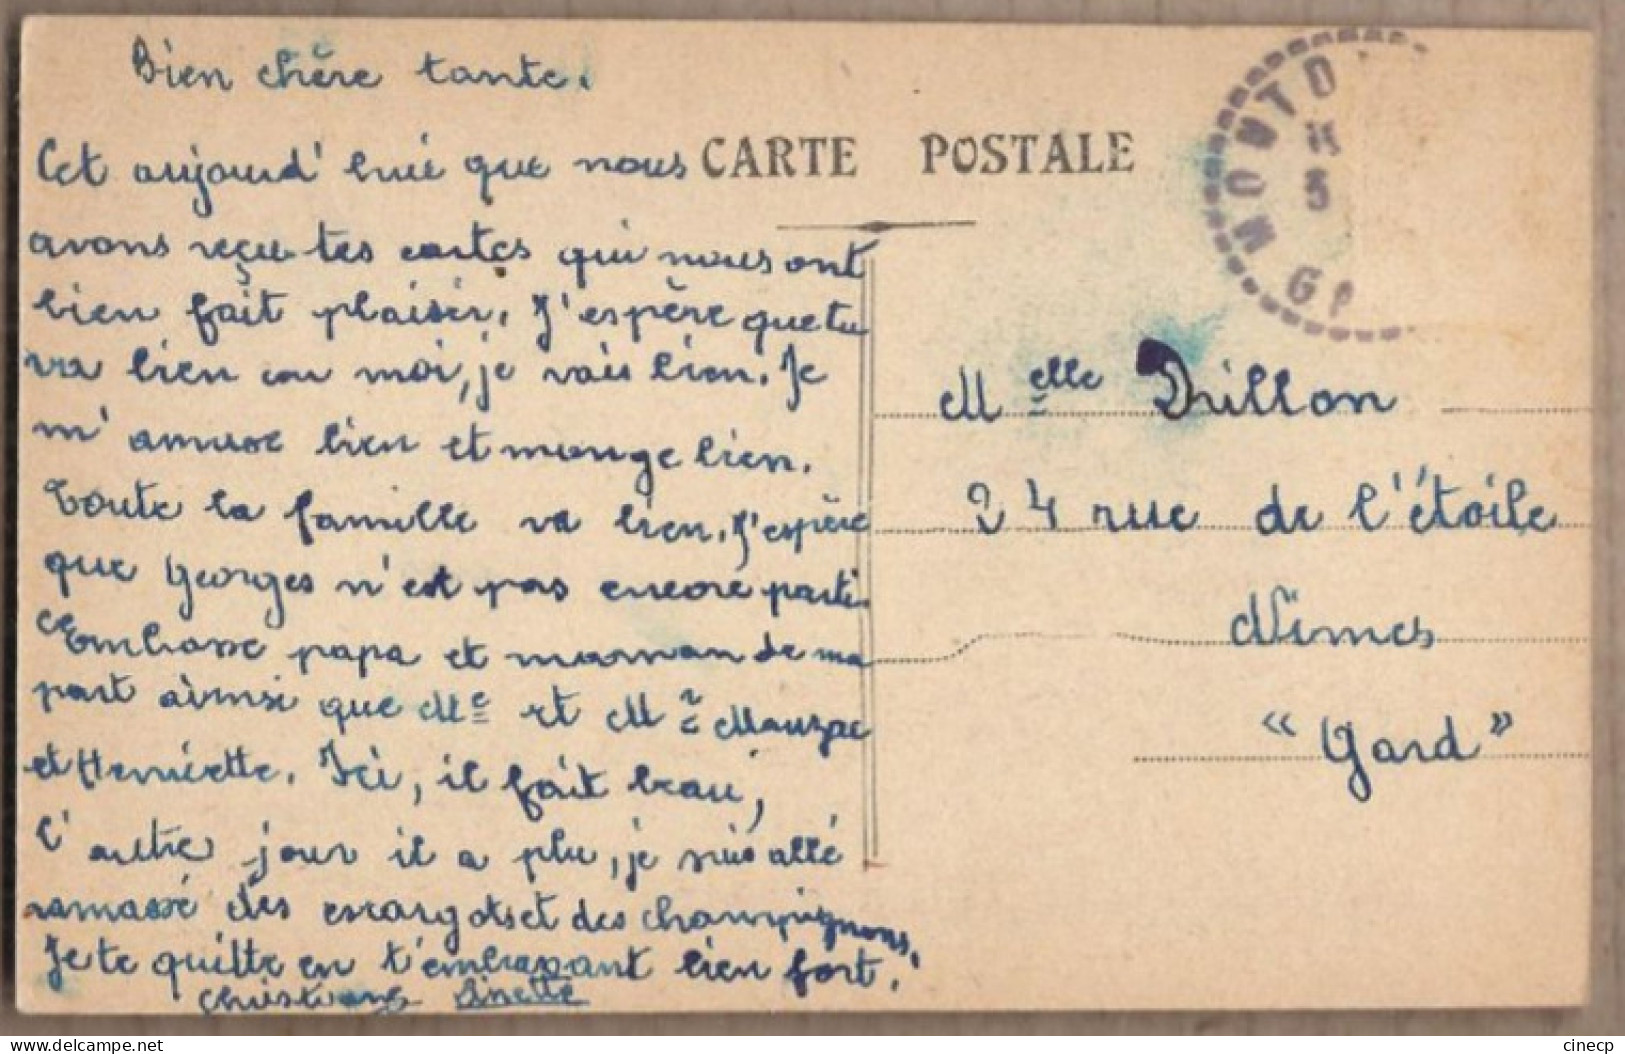 Bien chère tante.
Cet aujourd'hui que nous
avons reçu tes cartes qui nous ont
bien fait plaisir. J'espère que tu
va bien car moi, je vais bien. Je
m'amuse bien et mange bien.
Toute la famille va bien. J'espère
que Georges n'est pas encore parti.
Embrasse papa et maman de ma
part ainsi que Me et Mr Mauzac
et Henriette. Ici, il fait beau,
l'autre jour il a plu, je suis allé
ramassé des escargots et des champignons.
Je te quitte en t'embrassant bien fort.
Christiane Ginette
CARTE POSTALE
MONTD
5
Melle Drillon
24 rue de l'étoile
Nîmes
"Gard"
cinecp
delcampe.net